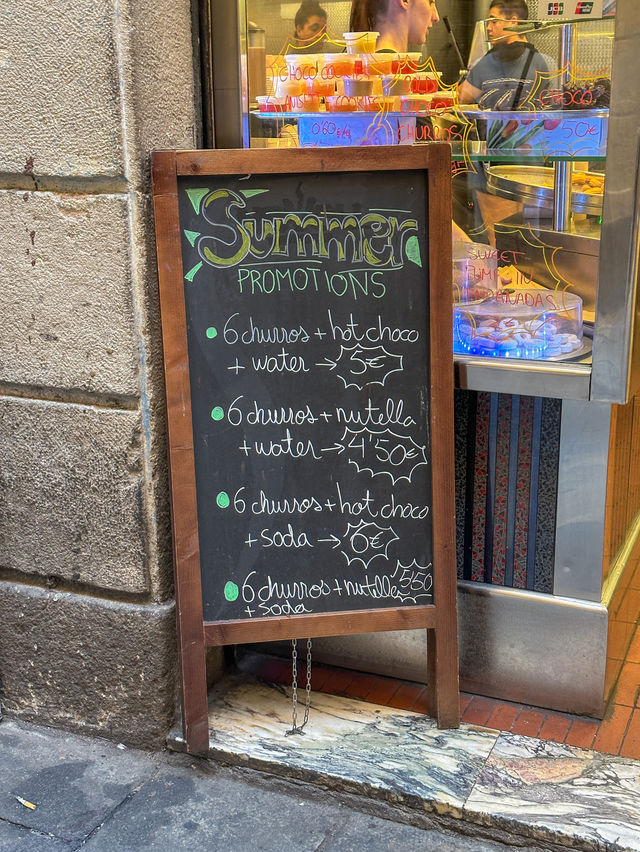 CHOCO COOKIE
COOKIES
CHOCO
0'60€
CHURROS
50€
SWEET
PUMPKIN
EMPANADAS
Summer
PROMOTIONS
6 churros + hot choco
+ water → 5€
6 churros + nutella
+ water → 4'50€
6 churros + hot choco
+ soda → 6€
6 churros + nutella 5'50
+ soda